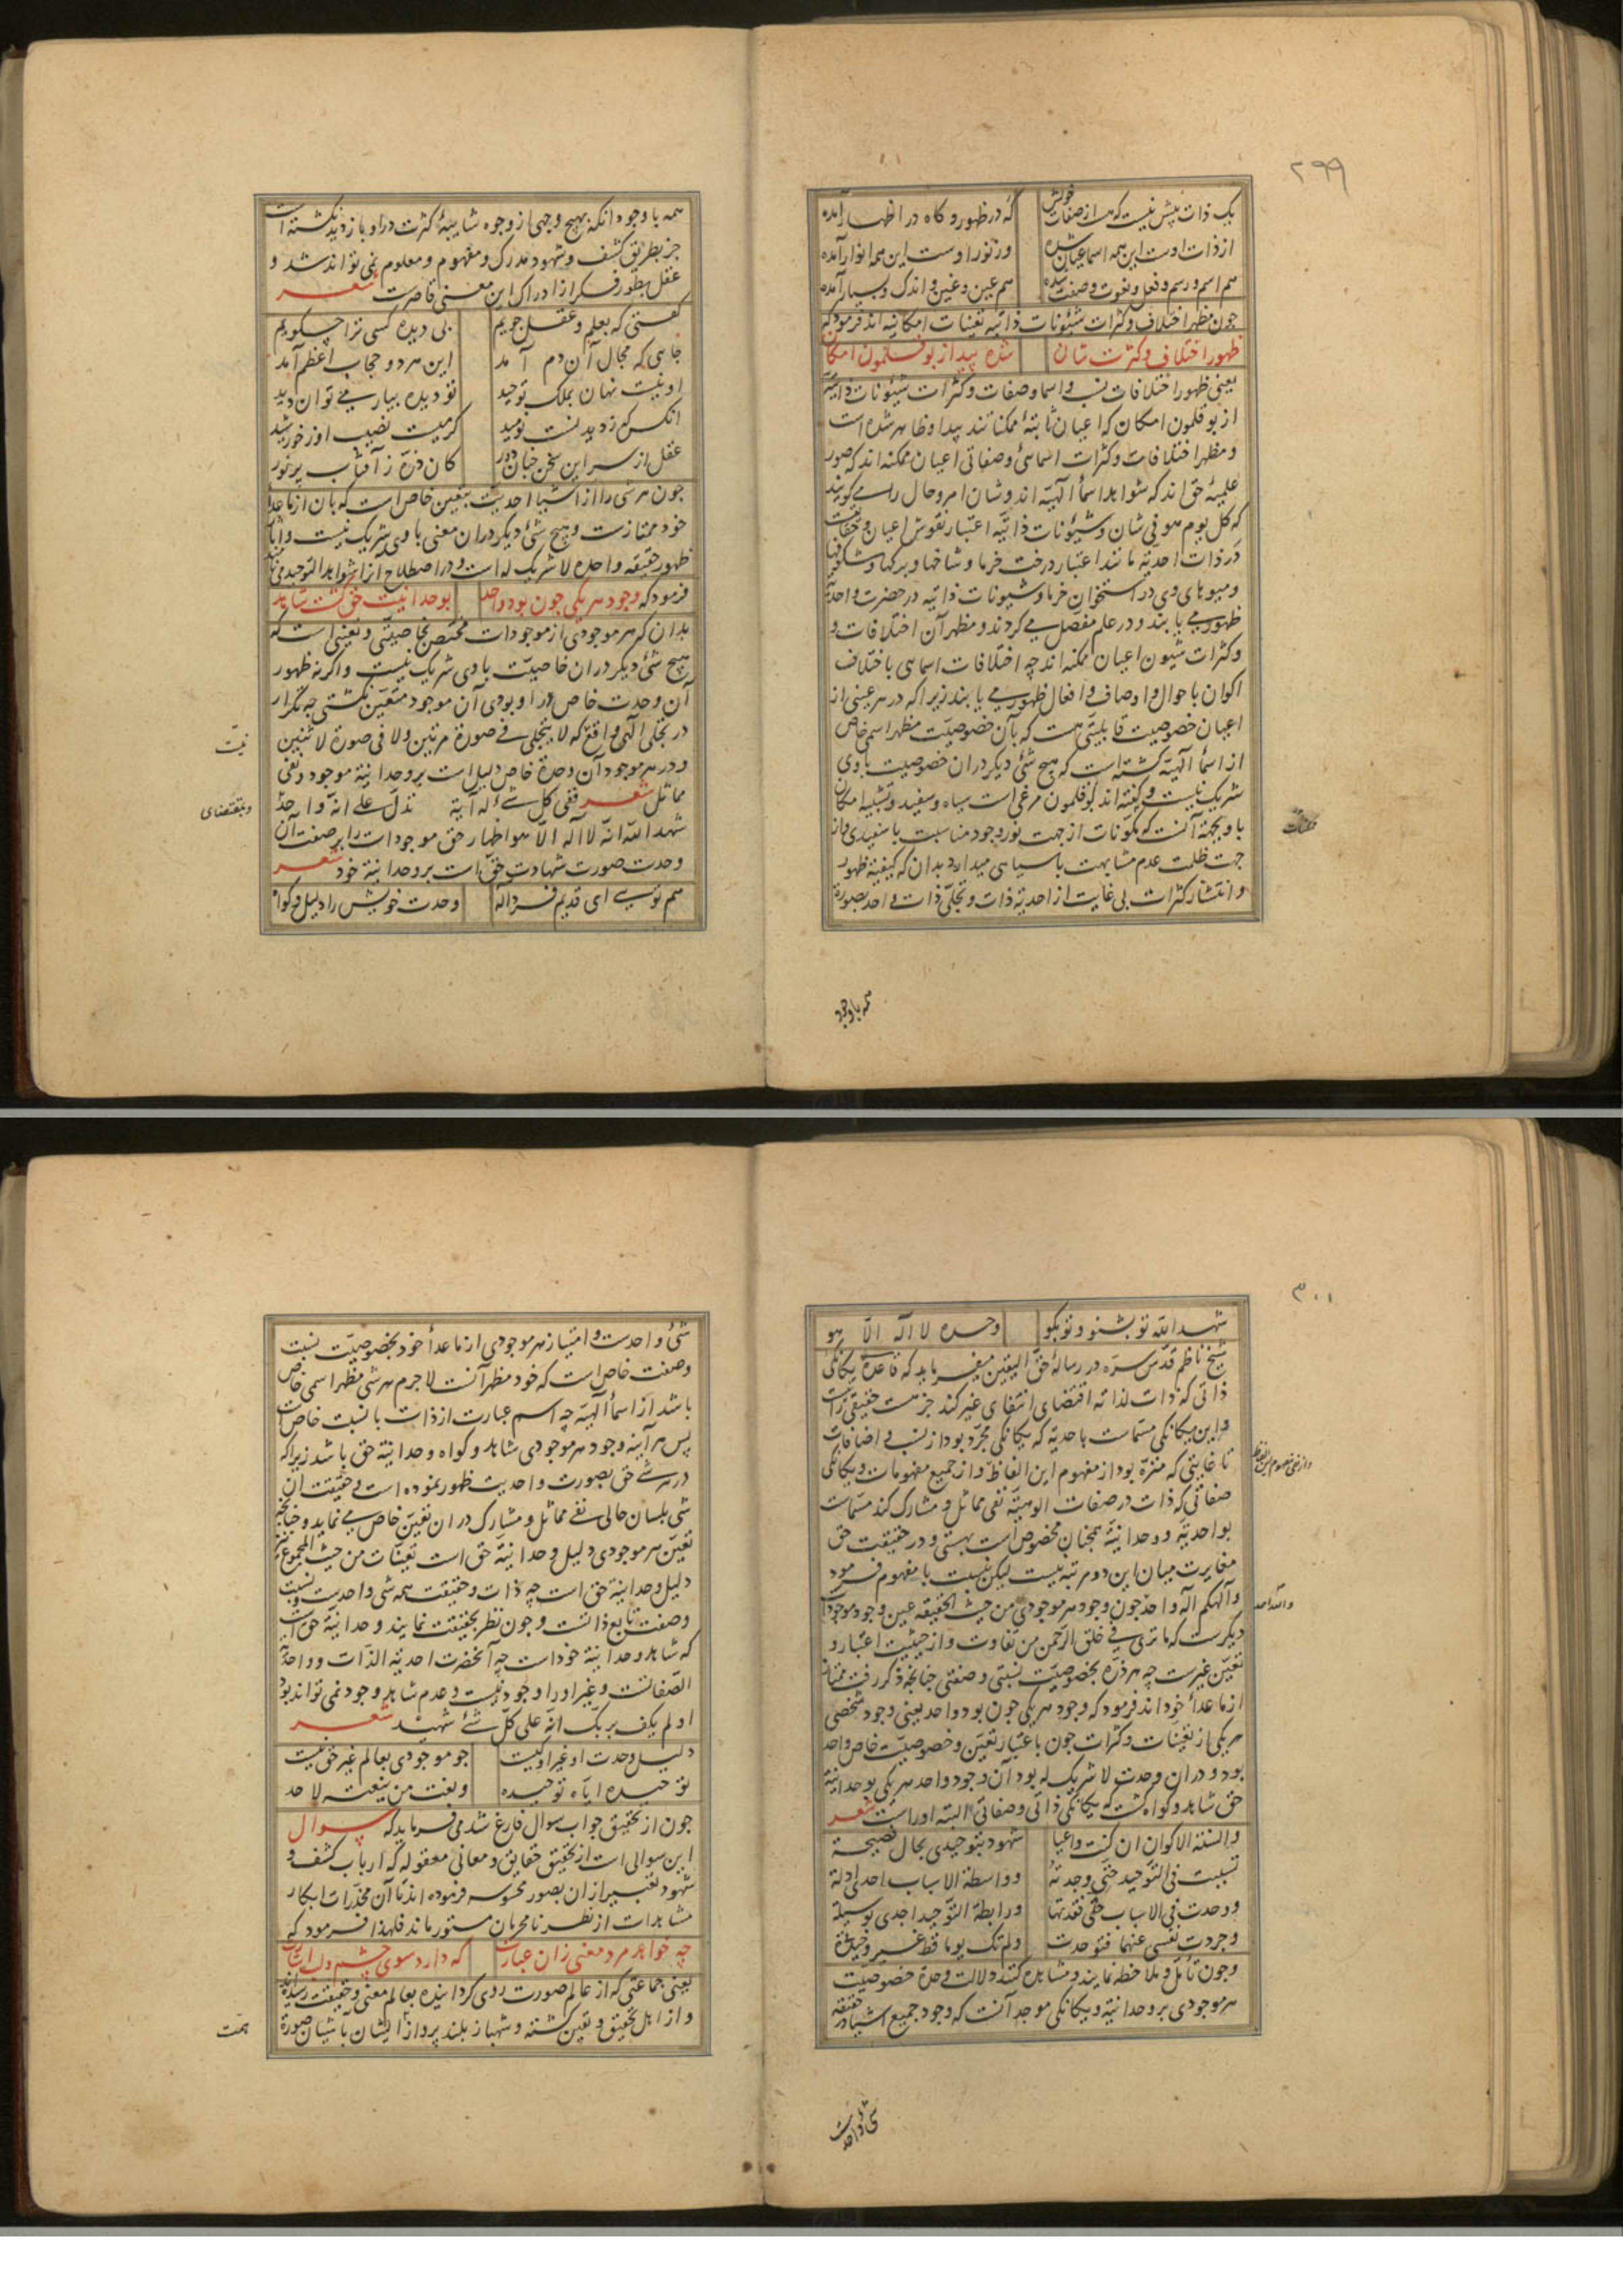 ۲۹۹
یک ذات پیش نیست که هست از صفات خویش که در ظهور و کاه در اظهار آمده
از ذات اوست این همه اسما عیان شده وز نور اوست این همه انوار آمده
هم اسم و رسم و فعل و نعوت و صفت شده هم عین و غین و اندک و بسیار آمده
چون مظهر اختلاف و کثرات شیونات ذاتیه تعینات امکانیه اند فرمود که
ظهور اختلاف و کثرت شان شده پیدا ز بوقلمون امکان
یعنی ظهور اختلافات نسب و اسما و صفات و کثرات شیونات ذاتیه
از بوقلمون امکان که اعیان ثابتهٔ ممکناتند پیدا و ظاهر شده است
و مظهر اختلافات و کثرات اسمائی و صفاتی اعیان ممکنه اند که صور
علمیهٔ حق اند که شواهد اسماٴ الٓهیه اند و شان امر و حال را می کویند
که کل یوم هو فی شان و شیونات ذاتیه اعتبار نقوش اعیان و حقایقست
در ذات احدیه مانند اعتبار درخت خرما و شاخها و برکها و شکوفها
و میوهای وی در استخوان خرما و شیونات ذاتیه در حضرت واحدیه
ظهور می یابند و در علم مفصل می کردند و مظهر آن اختلافات و
و کثرات شیون اعیان ممکنه اند چه اختلافات اسمایی باختلاف
اکوان باحوال و اوصاف و افعال ظهور می یابند زیرا که در هر عینی از
اعیان خصوصیت قابلیتی هست که بآن خصوصیت مظهر اسمی خاص
از اسماٴ الٓهیه کشته است که هیچ شئ دیکر در ان خصوصیت با وی
شریک نیست و کفته اند بوقلمون مرغی است سیاه و سفید و تشبیه امکان
باو بجهة آنست که مکونات از جهت نور وجود مناسبت با سفیدی و از
جهت ظلمت عدم مشابهت با سیاهی میدارد بدان که کیفیة ظهور
و انتشار کثرات بی غایت از احدیة ذات و تجلی ذات واحد بصورة
همه با وجود
همه با وجود انکه بهیچ وجهی از وجوه شایبهٔ کثرت در او باز دید نکشته است
جز بطریق کشف و شهود مدرک و مفهوم و معلوم نمی تواند شد و
عقل بطور فکر از ادراک این معنی قاصرست شعر
کفتی که بعلم و عقل جویم بی دیده کسی ترا چکویم
جایی که مجال آن دم آمد این هر دو حجاب اعظم آمد
او نیست نهان بملک توحید تو دیده بیار می توان دید
انکس که ز دیدنست نومید کرمیست نصیب او ز خورشید
عقل از سر این سخن چنان دور کان ذره ز آفتاب پر نور
چون هر شئ را از اشیا احدیت بتعین خاص است که بان از ماعدا
خود ممتازست و هیچ شئ دیکر در ان معنی با وی شریک نیست
ظهور حقیقه واحده لا شریک له است و در اصطلاح انرا شواهد التوحید می نامند
فرمود که وجود هر یکی چون بود واحد بوحدانیت حق کشت شاهد
بدان که هر موجودی از موجودات مختص بخاصیتی و تعینی است که
هیچ شئ دیکر در ان خاصیت با وی شریک نیست و اکر نه ظهور
آن وحدت خاص در او بودی آن موجود متعین نکشتی چه تکرار
در تجلی الٓهی واقع که لا یتجلی فی صورة مرتین و لا فی صورة لاثنین
نیست
و در هر موجود آن وحدة خاص دلیل است بر وحدانیة موجود و نفی
مماثل شعر ففی کل شئ له آیة تدل علی انه واحد
و بمقتضای
شهد الله انه لا اله الا هو اظهار حق موجودات را بر صفت آن
وحدت صورت شهادت حق است بر وحدانیة خود شعر
هم تویی ای قدیم فرد اله وحدت خویش را دلیل و کواه
۳۰۱
شهد الله تو بشنو و تو بکو وحده لا اله الا هو
شیخ ناظم قدس سره در رسالهٔ حق الیقین میفرماید که قاعدهٔ یکانکی
ذاتی که ذات لذاته اقتضای انتفای غیر کند جز هست حقیقی را نیست
و این یکانکی مسمات باحدیه که یکانکی مجرد بود از نسب و اضافات
تا غایتی که منزه بود از مفهوم این الفاظ و از جمیع مفهومات و یکانکی
صفاتی که ذات در صفات الوهیة نفی مماثل و مشارک کند مسمات
بواحدیة و وحدانیة همچنان مخصوص است بهستی و در حقیقت حق
مغایرت میان این دو مرتبه نیست لیکن نسبت با مفهوم فرمود
و الٓهکم اله واحد چون وجود هر موجودی من حیث الحقیقه عین وجود موجودات
و الله احد
دیکرست که ما تری فی خلق الرحمن من تفاوت و از حیثیت اعتبار و
تعین غیرست چه هر ذره بخصوصیت نسبتی و صفتی چنانچه ذکر رفت ممتاز
از ماعداٴ خود اند فرمود که وجود هر یکی چون بود واحد یعنی وجود شخصی
هر یکی از تعینات و کثرات چون باعتبار تعین و خصوصیت خاص واحد
بود و در ان وحدت لا شریک له بود آن وجود واحد هر یکی بوحدانیة
حق شاهد و کواه کشت که یکانکی ذاتی و صفاتی البته او راست شعر
و السنة الاکوان ان کنت واعیا شهود بتوحیدی بحال فصیحة
تسببت فی التوحید حتی وجدته و واسطة الاسباب احدی ادلة
و وحدت فی الاسباب حتی فقدتها و رابطة التوحید اجدی وسیلة
و جردت نفسی عنهما فتوحدت و لم تک یوما قط غیر وحیدة
و چون تامل و ملاحظه نمایند و مشاهده کنند دلالت وحدة خصوصیت
هر موجودی بر وحدانیة و یکانکی موجد آنست که وجود جمیع اشیا در حقیقة
شئ واحدست
شئ واحدست و امتیاز هر موجودی از ماعداٴ خود بخصوصیت نسبت
و صفت خاص است که خود مظهر آنست لاجرم هر شئ مظهر اسمی خاص
باشد از اسماٴ الٓهیة چه اسم عبارت از ذات با نسبت خاص است
پس هر آینه وجود هر موجودی شاهد و کواه وحدانیة حق باشد زیرا که
در هر شئ حق بصورت واحدیت ظهور نموده است و حقیقت ان
شئ بلسان حالی نفی مماثل و مشارک در ان تعین خاص می نماید و چنانچه
تعین هر موجودی دلیل وحدانیة حق است تعینات من حیث المجموع نیز
دلیل وحدانیة حق است چه ذات و حقیقت همه شئ واحدست و نسبت
و صفت تابع ذاتست و چون نظر بحقیقت نمایند وحدانیة حق است
که شاهد وحدانیة خود است چه آنحضرت احدیة الذات و واحدیة
الصفاتست و غیر او را وجود نیست و عدم شاهد وجود نمی تواند بود
او لم یکف بربک انه علی کل شئ شهید شعر
دلیل وحدت او غیر او نیست چو موجودی بعالم غیر حق نیست
توحیده ایاه توحیده و نعت من ینعته لاحد
چون از تحقیق جواب سوال فارغ شد می فرماید که سوال
این سوالی است از تحقیق حقایق و معانی معقوله که ارباب کشف و
شهود تعبیر از ان بصور محسوسه فرموده اند تا آن مخدرات ابکار
مشاهدات از نظر نامحرمان مستور ماند فلهذا فرمود که
چه خواهد مرد معنی زان عبارت که دارد سوی چشم و لب اشارت
یعنی جماعتی که از عالم صورت روی کردانیده بعالم معنی و حقیقت رسیده اند
و از اهل تحقیق و یقین کشته و شهباز بلند پرواز ایشان باشیان صورة
همت